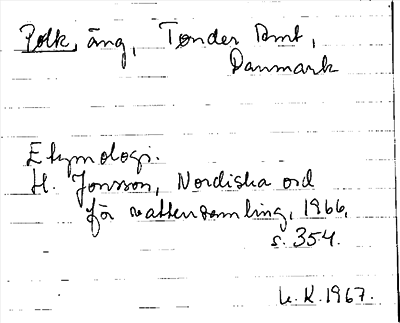 Polk, äng, Tønder Amt,
Danmark
Etymologi.
H. Jonsson, Nordiska ord
för vattensamling, 1966,
s. 354.
K. 1967.